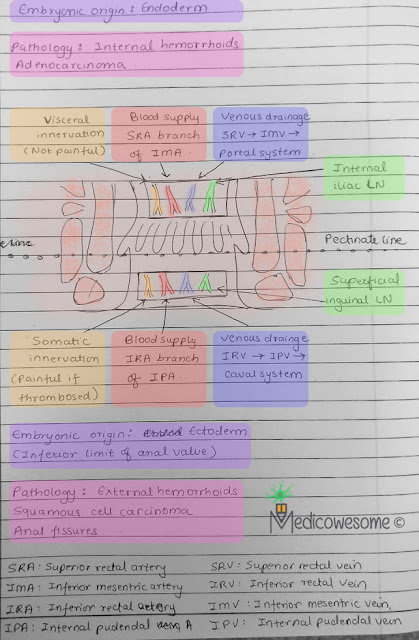 Embryonic origin: Endoderm
Pathology: Internal hemorrhoids
Adenocarcinoma.
Visceral
innervation
(Not painful)
Blood supply
SRA branch
of IMA.
Venous drainage
SRV → IMV →
Portal system
Internal
iliac LN
e line
Pectinate line
Superficial
inguinal LN
Somatic
innervation
(Painful if
thrombosed)
Blood supply
IRA branch
of IPA.
Venous drainge
IRV → IPV →
Caval system
Embryonic origin: Ectoderm
(Inferior limit of anal valve)
Pathology: External hemorrhoids
Squamous cell carcinoma
Anal fissures
Medicowesome ©
SRA: Superior rectal artery
SRV: Superior rectal vein
IMA: Inferior mesentric artery
IRV: Inferior rectal vein
IRA: Inferior rectal artery
IMV: Interior mesentric vein,
IPA: Internal pudendal A
IPV: Internal pudendal vein